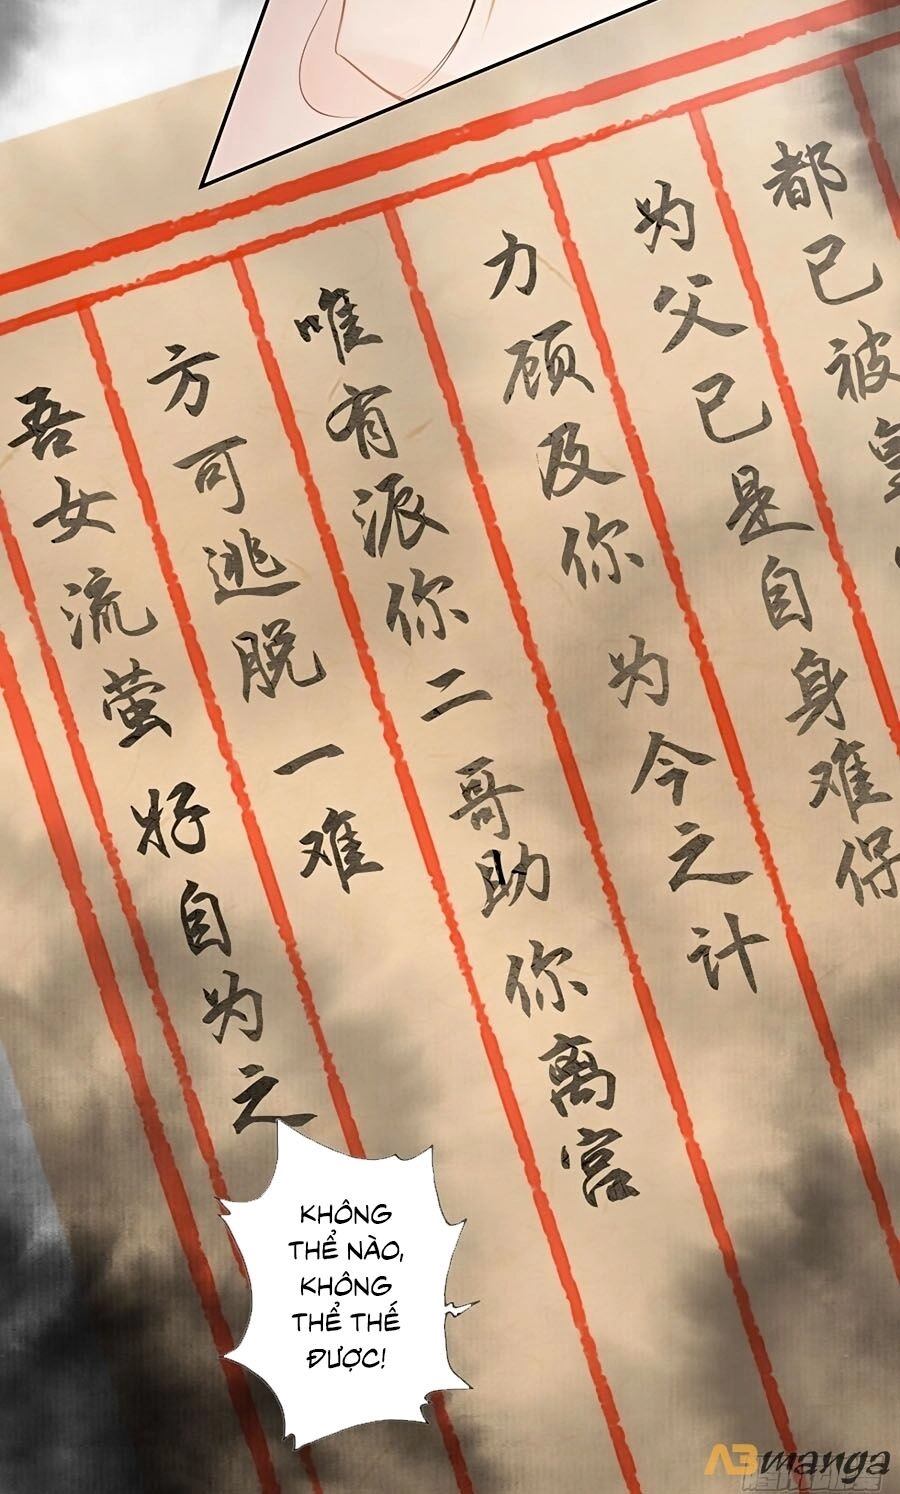 都已被皇
为父已是自身难保
力顾及你 为今之计
唯有派你二哥助你离宫
方可逃脱一难
吾女流萤 好自为之
KHÔNG
THỂ NÀO,
KHÔNG
THỂ THẾ
ĐƯỢC!
ABmanga